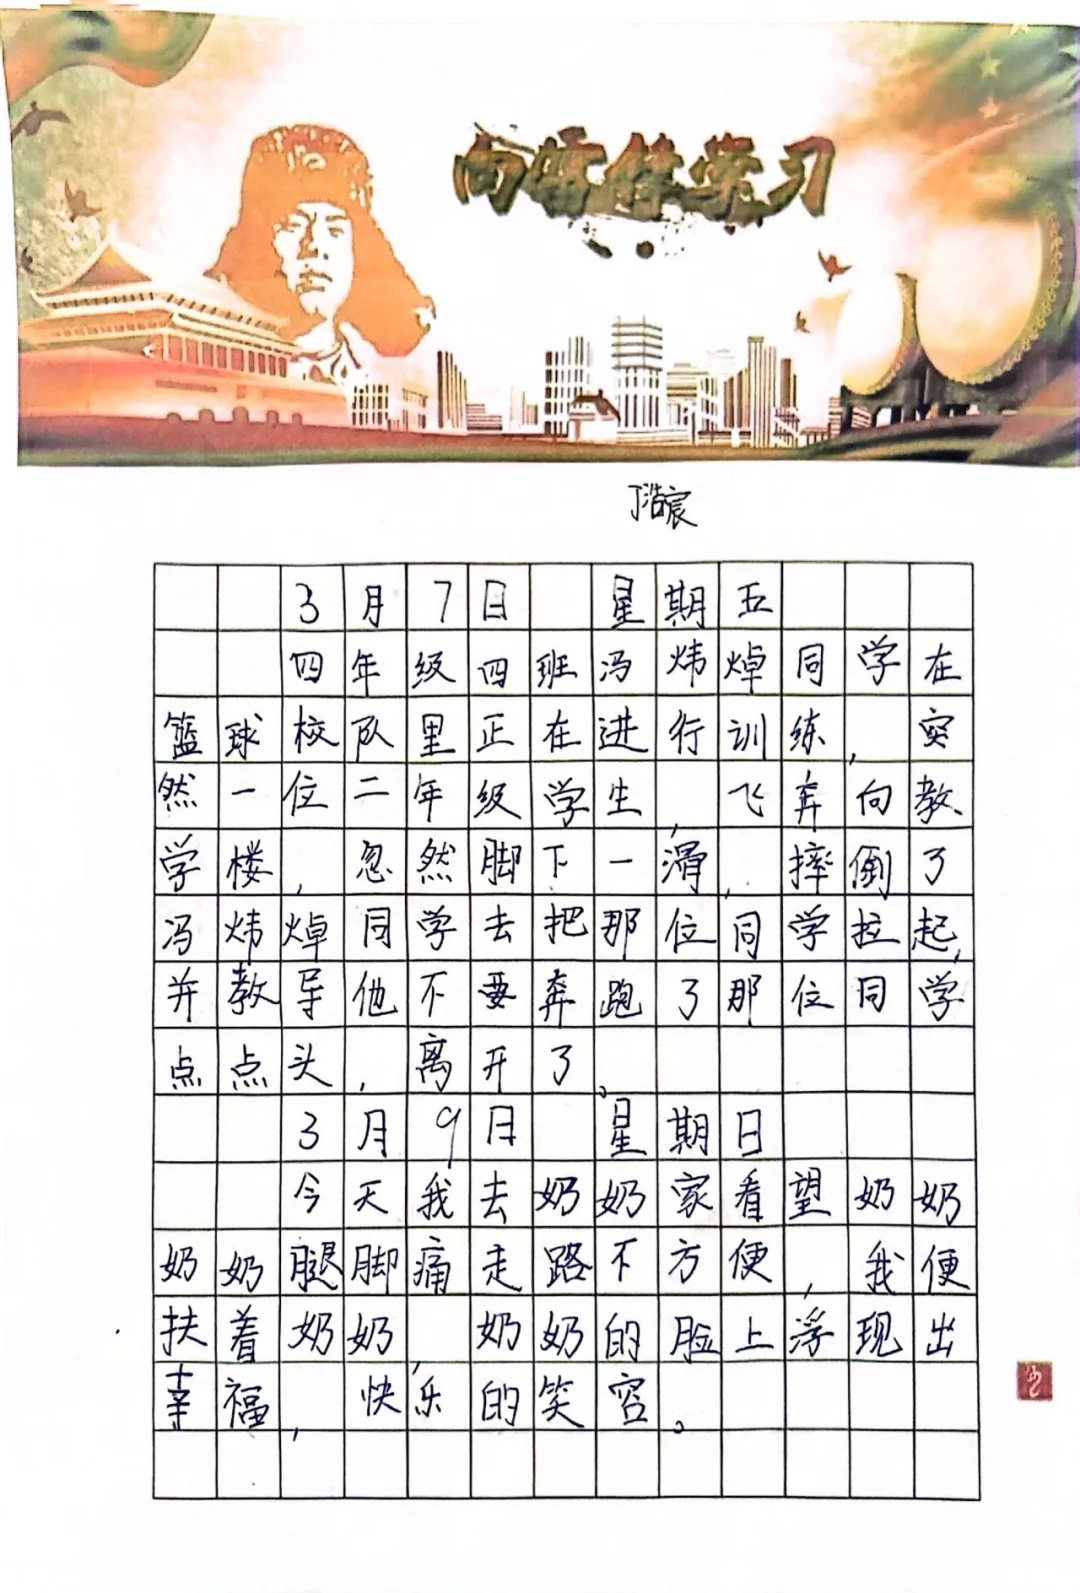 向雷锋学习
丁浩宸
3月7日 星期五
四年级四班冯炜焯同学在
篮球校队里正在进行训练,突
然一位二年级学生,飞奔向教
学楼,忽然脚下一滑,摔倒了
冯炜焯同学去把那位同学拉起,
并教导他不要奔跑了那位同学
点点头,离开了。
3月9日 星期日
今天我去奶奶家看望奶奶
奶奶腿脚痛走路不方便,我便
扶着奶奶,奶奶的脸上浮现出
幸福,快乐的笑容。